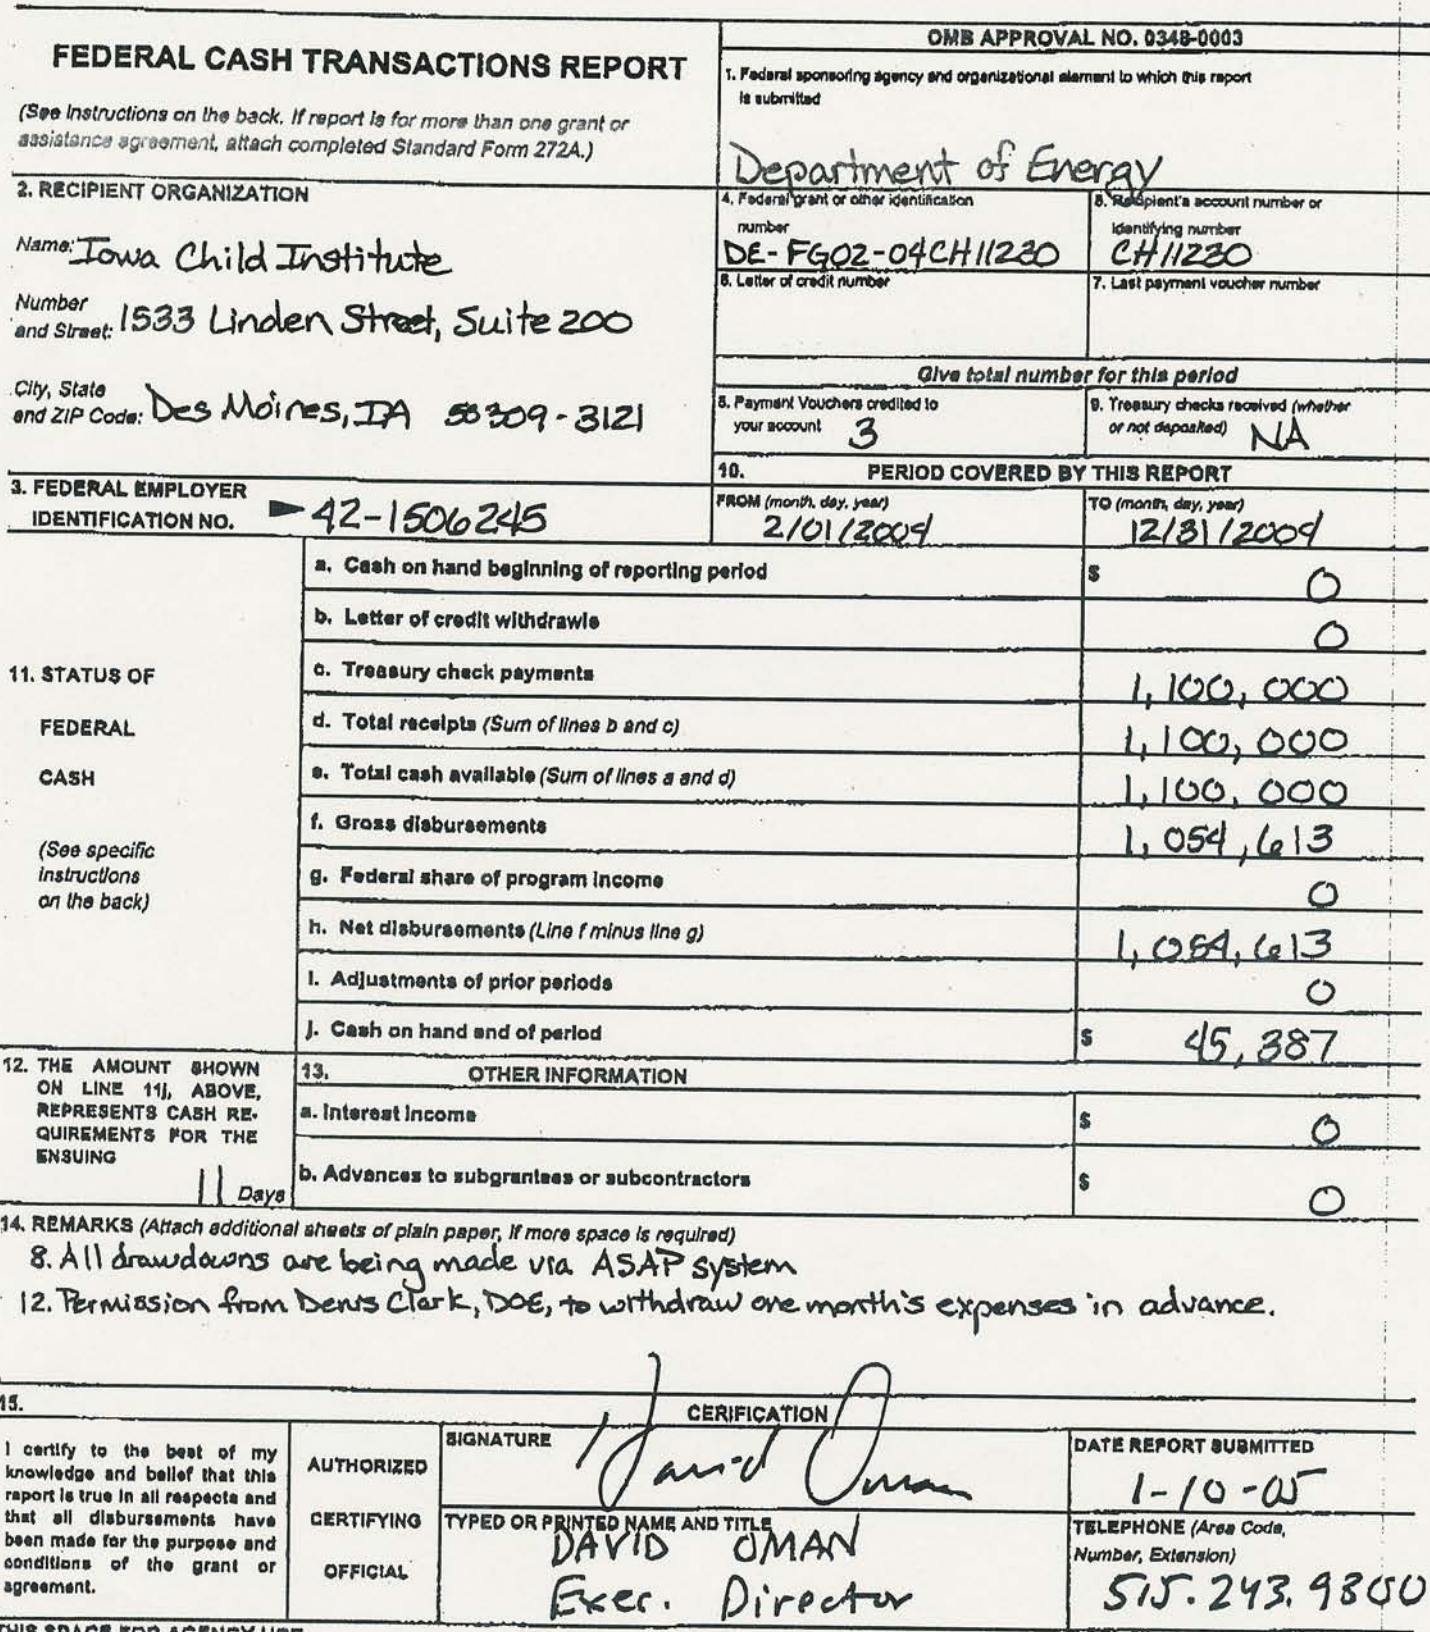 FEDERAL CASH TRANSACTIONS REPORT
(See Instructions on the back. If report is for more than one grant or
assistance agreement, attach completed Standard Form 272A.)
OMB APPROVAL NO. 0348-0003
1. Federal sponsoring agency and organizational element to which this report
is submitted
Department of Energy
2. RECIPIENT ORGANIZATION
Name: Iowa Child Institute
Number
and Street: 1533 Linden Street, Suite 200
City, State
and ZIP Code: Des Moines, IA 50309-3121
4. Federal grant or other identification
number
DE-FG02-04CH11230
5. Recipient's account number or
identifying number
CH11230
6. Letter of credit number
7. Last payment voucher number
Give total number for this period
8. Payment Vouchers credited to
your account 3
9. Treasury checks received (whether
or not deposited) NA
3. FEDERAL EMPLOYER
IDENTIFICATION NO. 42-1506245
10. PERIOD COVERED BY THIS REPORT
FROM (month, day, year)
2/01/2004
TO (month, day, year)
12/31/2004
11. STATUS OF
FEDERAL
CASH
(See specific
instructions
on the back)
a. Cash on hand beginning of reporting period $ 0
b. Letter of credit withdrawls 0
c. Treasury check payments 1,100,000
d. Total receipts (Sum of lines b and c) 1,100,000
e. Total cash available (Sum of lines a and d) 1,100,000
f. Gross disbursements 1,054,613
g. Federal share of program income 0
h. Net disbursements (Line f minus line g) 1,054,613
i. Adjustments of prior periods 0
j. Cash on hand end of period $ 45,387
12. THE AMOUNT SHOWN
ON LINE 11j, ABOVE,
REPRESENTS CASH RE-
QUIREMENTS FOR THE
ENSUING
11 Days
13. OTHER INFORMATION
a. Interest income $ 0
b. Advances to subgrantees or subcontractors $ 0
14. REMARKS (Attach additional sheets of plain paper, if more space is required)
8. All drawdowns are being made via ASAP system
12. Permission from Denis Clark, DOE, to withdraw one month's expenses in advance.
15. CERIFICATION
I certify to the best of my
knowledge and belief that this
report is true in all respects and
that all disbursements have
been made for the purpose and
conditions of the grant or
agreement.
AUTHORIZED
CERTIFYING
OFFICIAL
SIGNATURE
David Oman
DATE REPORT SUBMITTED
1-10-05
TYPED OR PRINTED NAME AND TITLE
DAVID OMAN
Exec. Director
TELEPHONE (Area Code,
Number, Extension)
515.243.9800
THIS SPACE FOR AGENCY USE